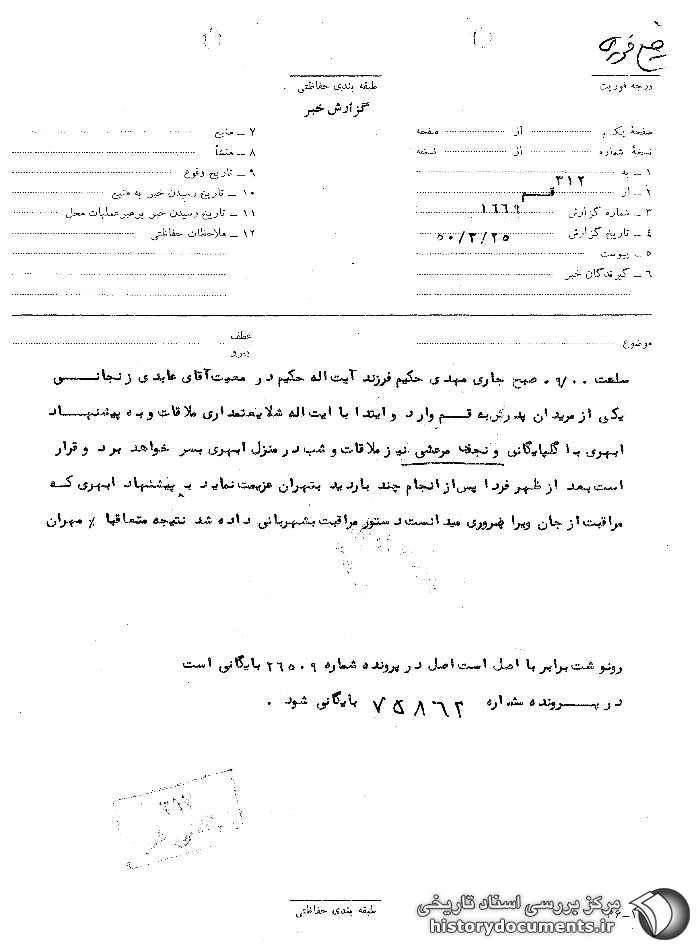 خیلی فوری
درجه فوریت
طبقه بندی حفاظتی
گزارش خبر
صفحهٔ یکم از صفحه
نسخهٔ شماره از نسخه
۱ ـ به ۳۱۲
۲ ـ از قم
۳ ـ شماره گزارش ۱۶۶۹
۴ ـ تاریخ گزارش ۵۰/۳/۲۵
۵ ـ پیوست
۶ ـ گیرندگان خبر
۷ ـ منبع
۸ ـ منشأ
۹ ـ تاریخ وقوع
۱۰ ـ تاریخ رسیدن خبر به منبع
۱۱ ـ تاریخ رسیدن خبر برهبر عملیات محل
۱۲ ـ ملاحظات حفاظتی
موضوع
عطف
پیرو
ساعت ۰۹/۰۰ صبح جاری مهدی حکیم فرزند آیت اله حکیم در معیت آقای عابدی زنجانی
یکی از مریدان پدرش به قم وارد و ابتدا با ایت اله شریعتمداری ملاقات و به پیشنهاد
ابهری با گلپایگانی و نجفی مرعشی نیز ملاقات و شب در منزل ابهری بسر خواهد برد و قرار
است بعد از ظهر فردا پس از انجام چند بازدید بتهران عزیمت نماید به پیشنهاد ابهری که
مراقبت از جان ویرا ضروری میدانست دستور مراقبت بشهربانی داده شد نتیجه متعاقبا٪ مهران
رونوشت برابر با اصل است اصل در پرونده شماره ۲۶۵۰۹ بایگانی است
در پرونده شماره ۷۵۸۶۲ بایگانی شود .
۳۱۲
طبقه بندی حفاظتی
مرکز بررسی اسناد تاریخی
historydocuments.ir